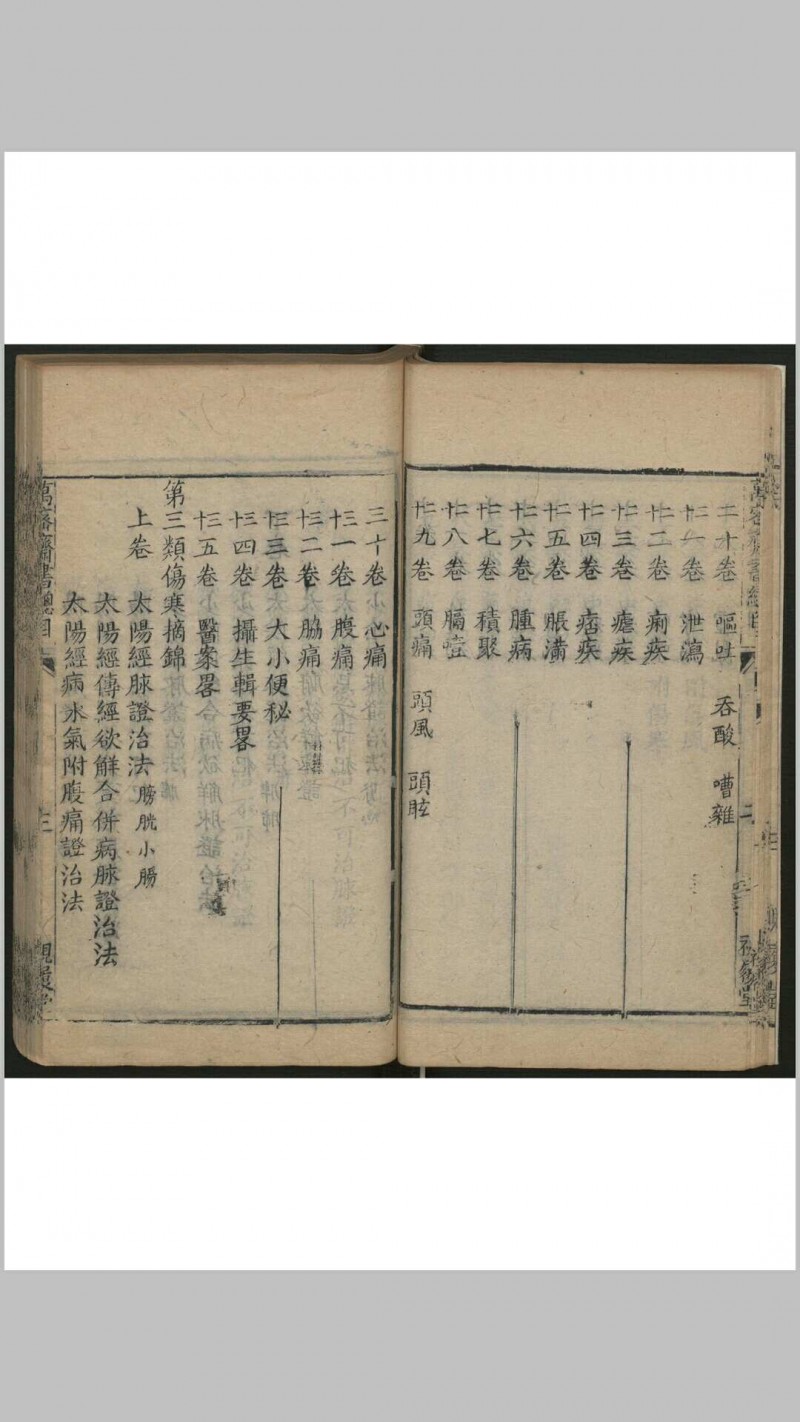 二十卷 嘔吐 吞酸 嘈雜
二十一卷 泄瀉
二十二卷 痢疾
二十三卷 瘧疾
二十四卷 痞疾
二十五卷 脹滿
二十六卷 腫病
二十七卷 積聚
二十八卷 膈噎
二十九卷 頭痛 頭風 頭眩
三十卷 心痛
三十一卷 腹痛
三十二卷 脇痛
三十三卷 大小便秘
三十四卷 攝生輯要畧
三十五卷 醫案畧
第三類傷寒摘錦
上卷 太陽經脉證治法 膀胱小腸
太陽經傳經欲解合併病脉證治法
太陽經病水氣附腹痛證治法